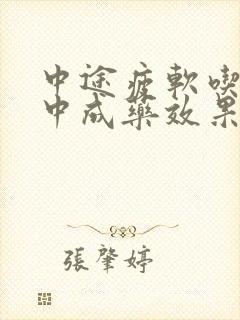 中途疲軟喫
中成藥效果
張肇婷